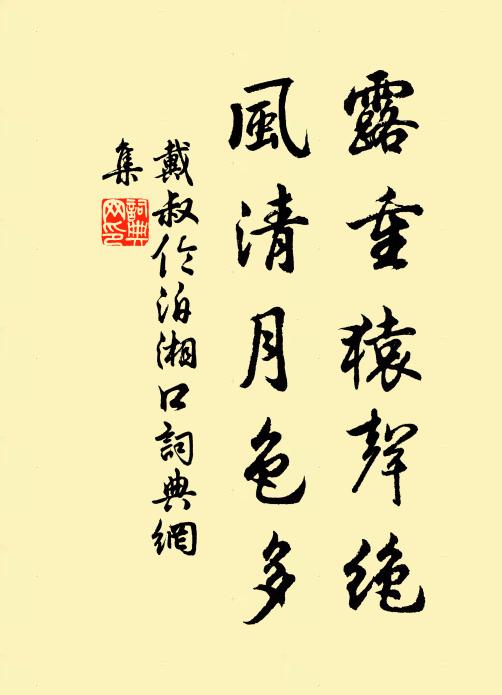 露重猿聲絶
風清月色多
戴叔伦泊湘口詞典網
集
詞典
网印